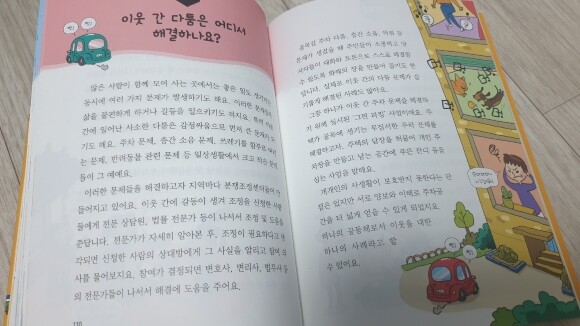 이웃 간 다툼은 어디서
해결하나요?
많은 사람이 함께 모여 사는 곳에서는 좋은 일도 생기지만
동시에 여러 가지 문제가 발생하기도 해요. 이러한 문제들이
삶을 불편하게 하거나 갈등을 일으키기도 하지요. 특히 이웃
간에 일어난 사소한 다툼은 감정싸움으로 번져 큰 문제가 되
기도 해요. 주차 문제, 층간 소음 문제, 쓰레기를 함부로 버리
는 문제, 반려동물 관련 문제 등 일상생활에서 크고 작은 문제
들이 그 예예요.
이러한 문제들을 해결하고자 지역마다 분쟁조정센터들이 만
들어지고 있어요. 이웃 간에 갈등이 생겨 조정을 신청한 사람
들에게 전문 상담원, 법률 전문가 등이 나서서 조정을 도와
준답니다. 전문가가 자세히 알아본 후, 조정이 필요하다고 생
각되면 신청한 사람의 상대방에게 그 사실을 알리고 참여 의
사를 물어보지요. 참여가 결정되면 변호사, 변리사, 법무사 등
의 전문가들이 나서서 해결에 도움을 주어요.
110
골목길 주차 다툼, 층간 소음, 악취 등
문제가 생겼을 때 주민들이 소통하고 당
사자들이 대화와 토론으로 스스로 해결할
수 있도록 화해의 장을 만들어 줍니다
실제로 이웃 간의 다툼 문제가 슬
기롭게 해결된 사례도 많아요.
그중 하나가 이웃 간 주차 문제를 해결하
기 위해 실시된 '그린 파킹' 사업이에요. 주
택가 골목에 생기는 무질서한 주차 문제를
해결하고자, 주택의 담장을 허물어 개인 주
차장을 만들고 남는 공간에 푸른 잔디 등을
심는 사업을 말해요.
개개인의 사생활이 보호받지 못한다는 단
점은 있지만 서로 양보와 이해로 주차공
간을 더 넓게 얻을 수 있게 되었지요.
하나의 공동체로서 이웃을 대한
하나의 사례라고 할
수 있어요.